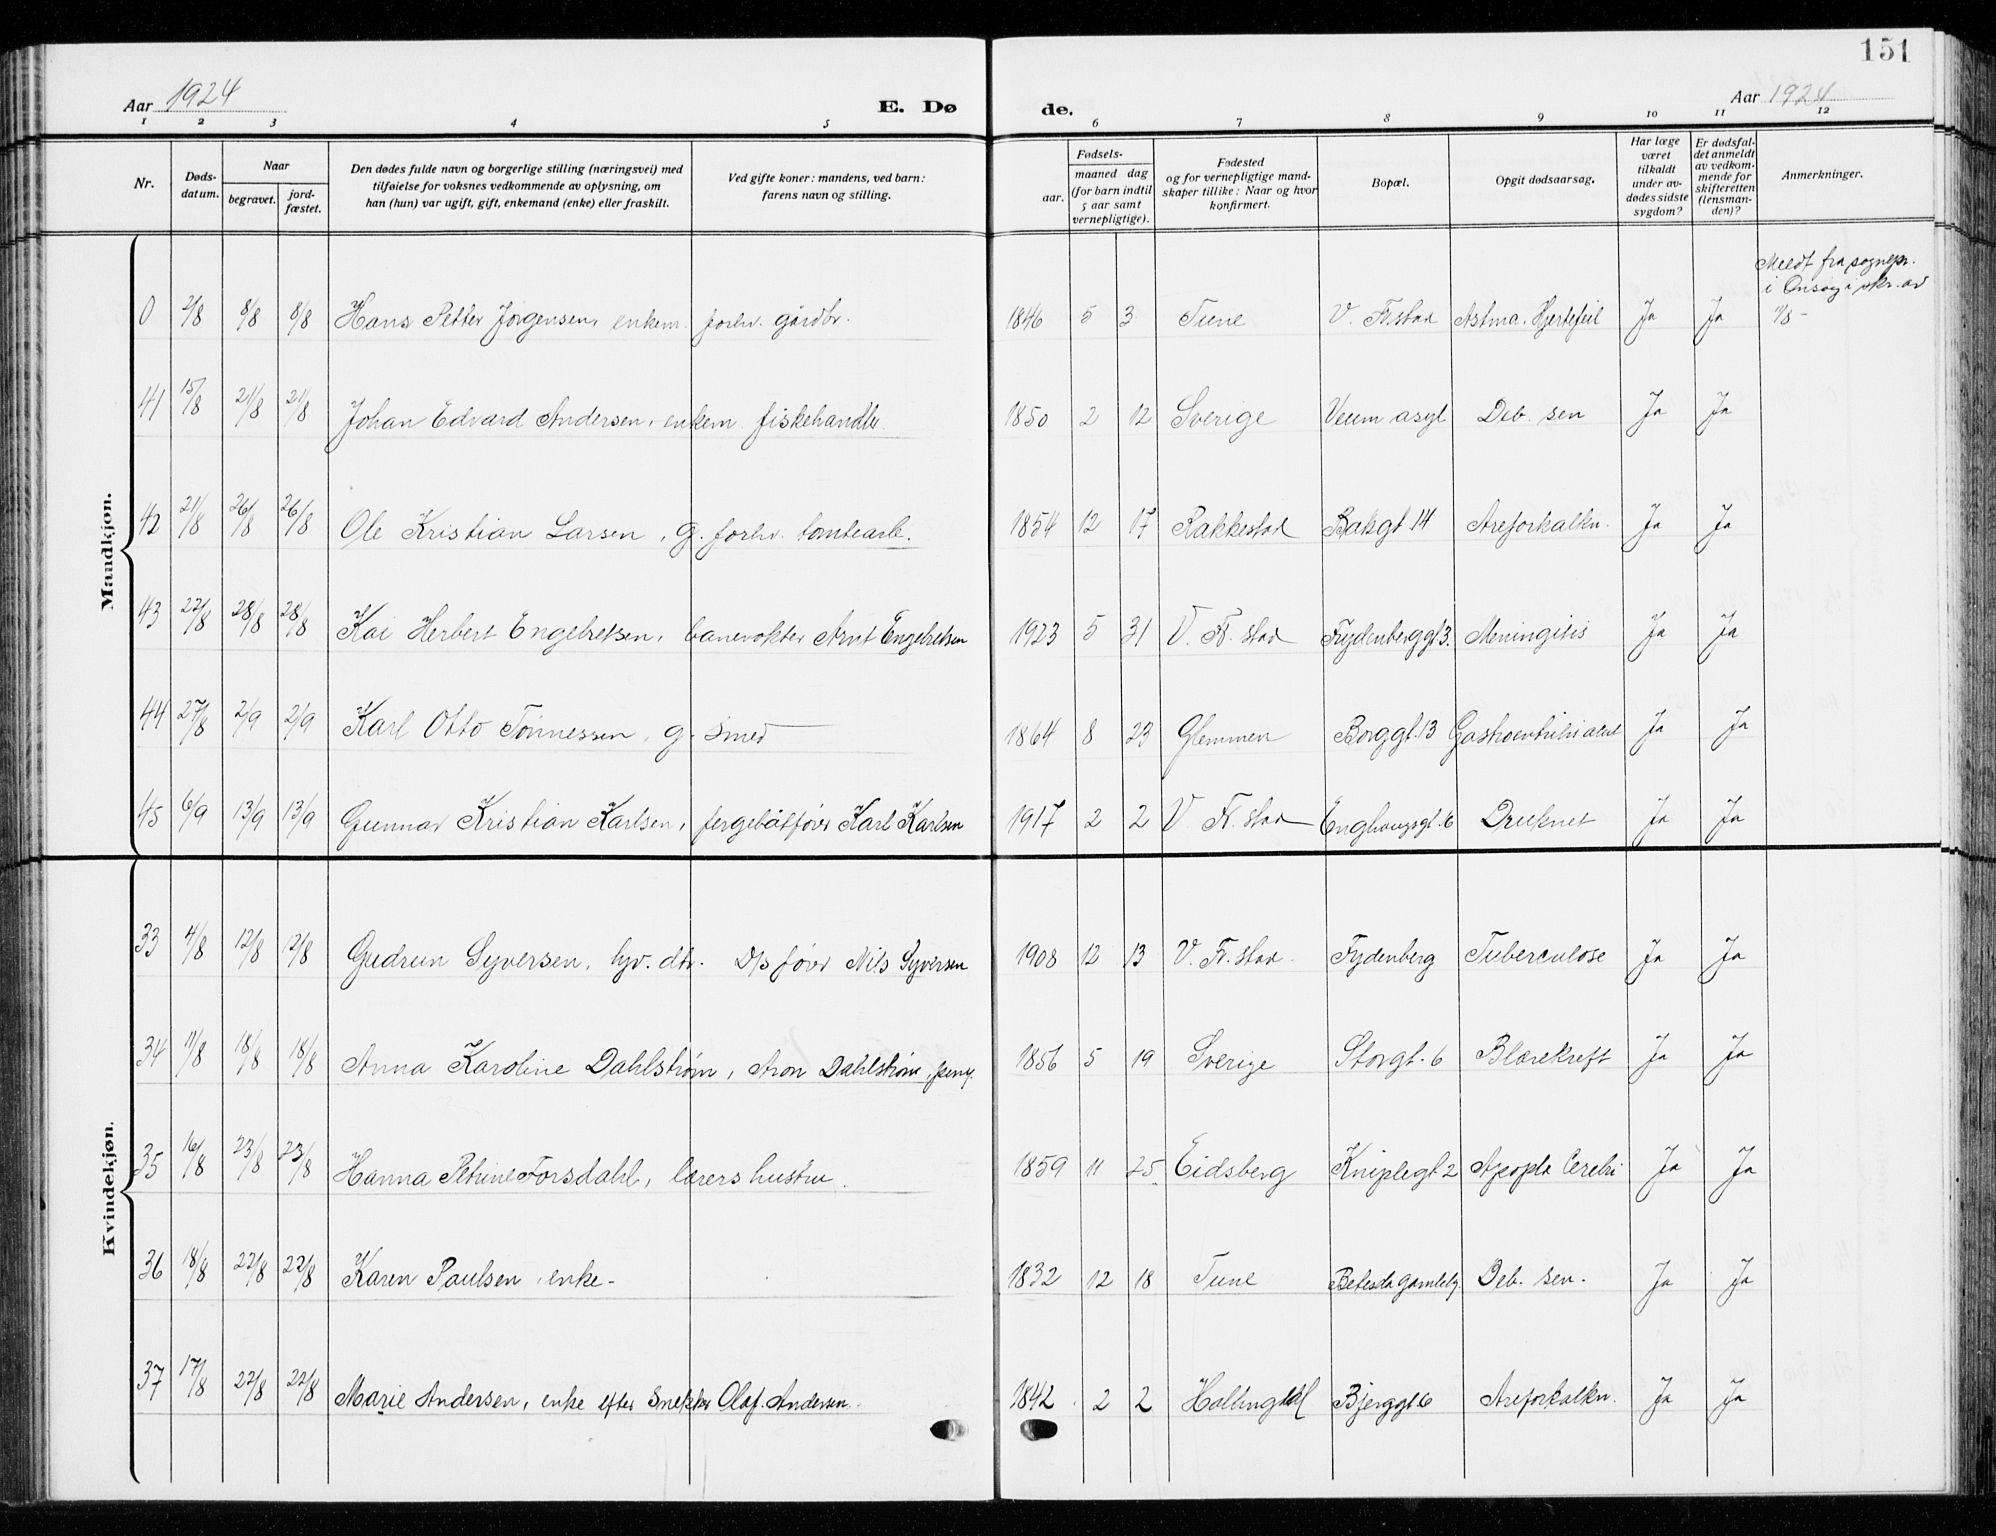 151
Aar 1924
E. Dø
de.
Aar 1924
1 2 3 4 5 6 7 8 9 10 11 12
Nr.
Døds-
datum.
Naar
begravet.
jord-
fæstet.
Den dødes fulde navn og borgerlige stilling (næringsvei) med
tilføielse for voksnes vedkommende av oplysning, om
han (hun) var ugift, gift, enkemand (enke) eller fraskilt.
Ved gifte koner: mandens, ved barn:
farens navn og stilling.
Fødsels-
aar.
maaned dag
(for barn indtil
5 aar samt
vernepligtige).
Fødested
og for vernepligtige mand-
skaper tillike: Naar og hvor
konfirmert.
Bopæl.
Opgit dødsaarsag.
Har læge
været
tilkaldt
under av-
dødes sidste
sygdom?
Er dødsfal-
det anmeldt
av vedkom-
mende for
skifteretten
(lensman-
den)?
Anmerkninger.
Mandkjøn.
Meldt fra sognepr.
i Onsøy i skr. av
11/8 -
0 2/8 8/8 8/8 Hans Petter Jørgensen, enkem. forhv. gårdbr. 1846 5 3 Tune V. Fr.stad Astma. Hjertefeil Ja Ja
41 15/8 21/8 21/8 Johan Edvard Andersen, enkem. fiskehandler. 1850 2 12 Sverige Veum asyl Deb. sen Ja Ja
42 21/8 26/8 26/8 Ole Kristian Larsen, g. forhv. tomtearb. 1854 12 17 Rakkestad Bakgt 14 Areforkalkn. Ja Ja
43 22/8 28/8 28/8 Kai Herbert Engebretsen, banevokter Arnt Engebretsen 1923 5 31 V. Fr. stad Frydenberggt 3. Meningitis Ja Ja
44 27/8 2/9 2/9 Karl Otto Tønnessen, g. smed 1864 8 23 Glemmen Borggt. 13 Ja Ja
45 6/9 13/9 13/9 Gunnar Kristian Karlsen, fergebåtfører Karl Karlsen 1917 2 2 V. Fr. stad Enghaugsgt. 6 Druknet Ja Ja
Kvindekjøn.
33 4/8 12/8 12/8 Gudrun Syversen, hjv. dtr. D/s fører Nils Syversen 1908 12 13 V. Fr. stad. Frydenberg Tuberculose Ja Ja
34 11/8 18/8 18/8 Anna Karoline Dahlstrøm, Aron Dahlstrøm, 1856 5 19 Sverige Storgt. 6 Blærekreft Ja Ja
35 16/8 23/8 23/8 Hanna Petrine Forsdahl, lærers hustru. 1859 11 25. Eidsberg Kniplegt 2 Apopla Cerebri Ja Ja
36 18/8 22/8 22/8 Karen Paulsen, enke - 1832 12 18 Tune Betesda gamleh. Deb. sen. Ja Ja
37 17/8 22/8 22/8 Marie Andersen, enke efter Snekker Olaf Andersen. 1842 2 2 Hallingdal Bjerggt 6 Areforkalkn. Ja Ja